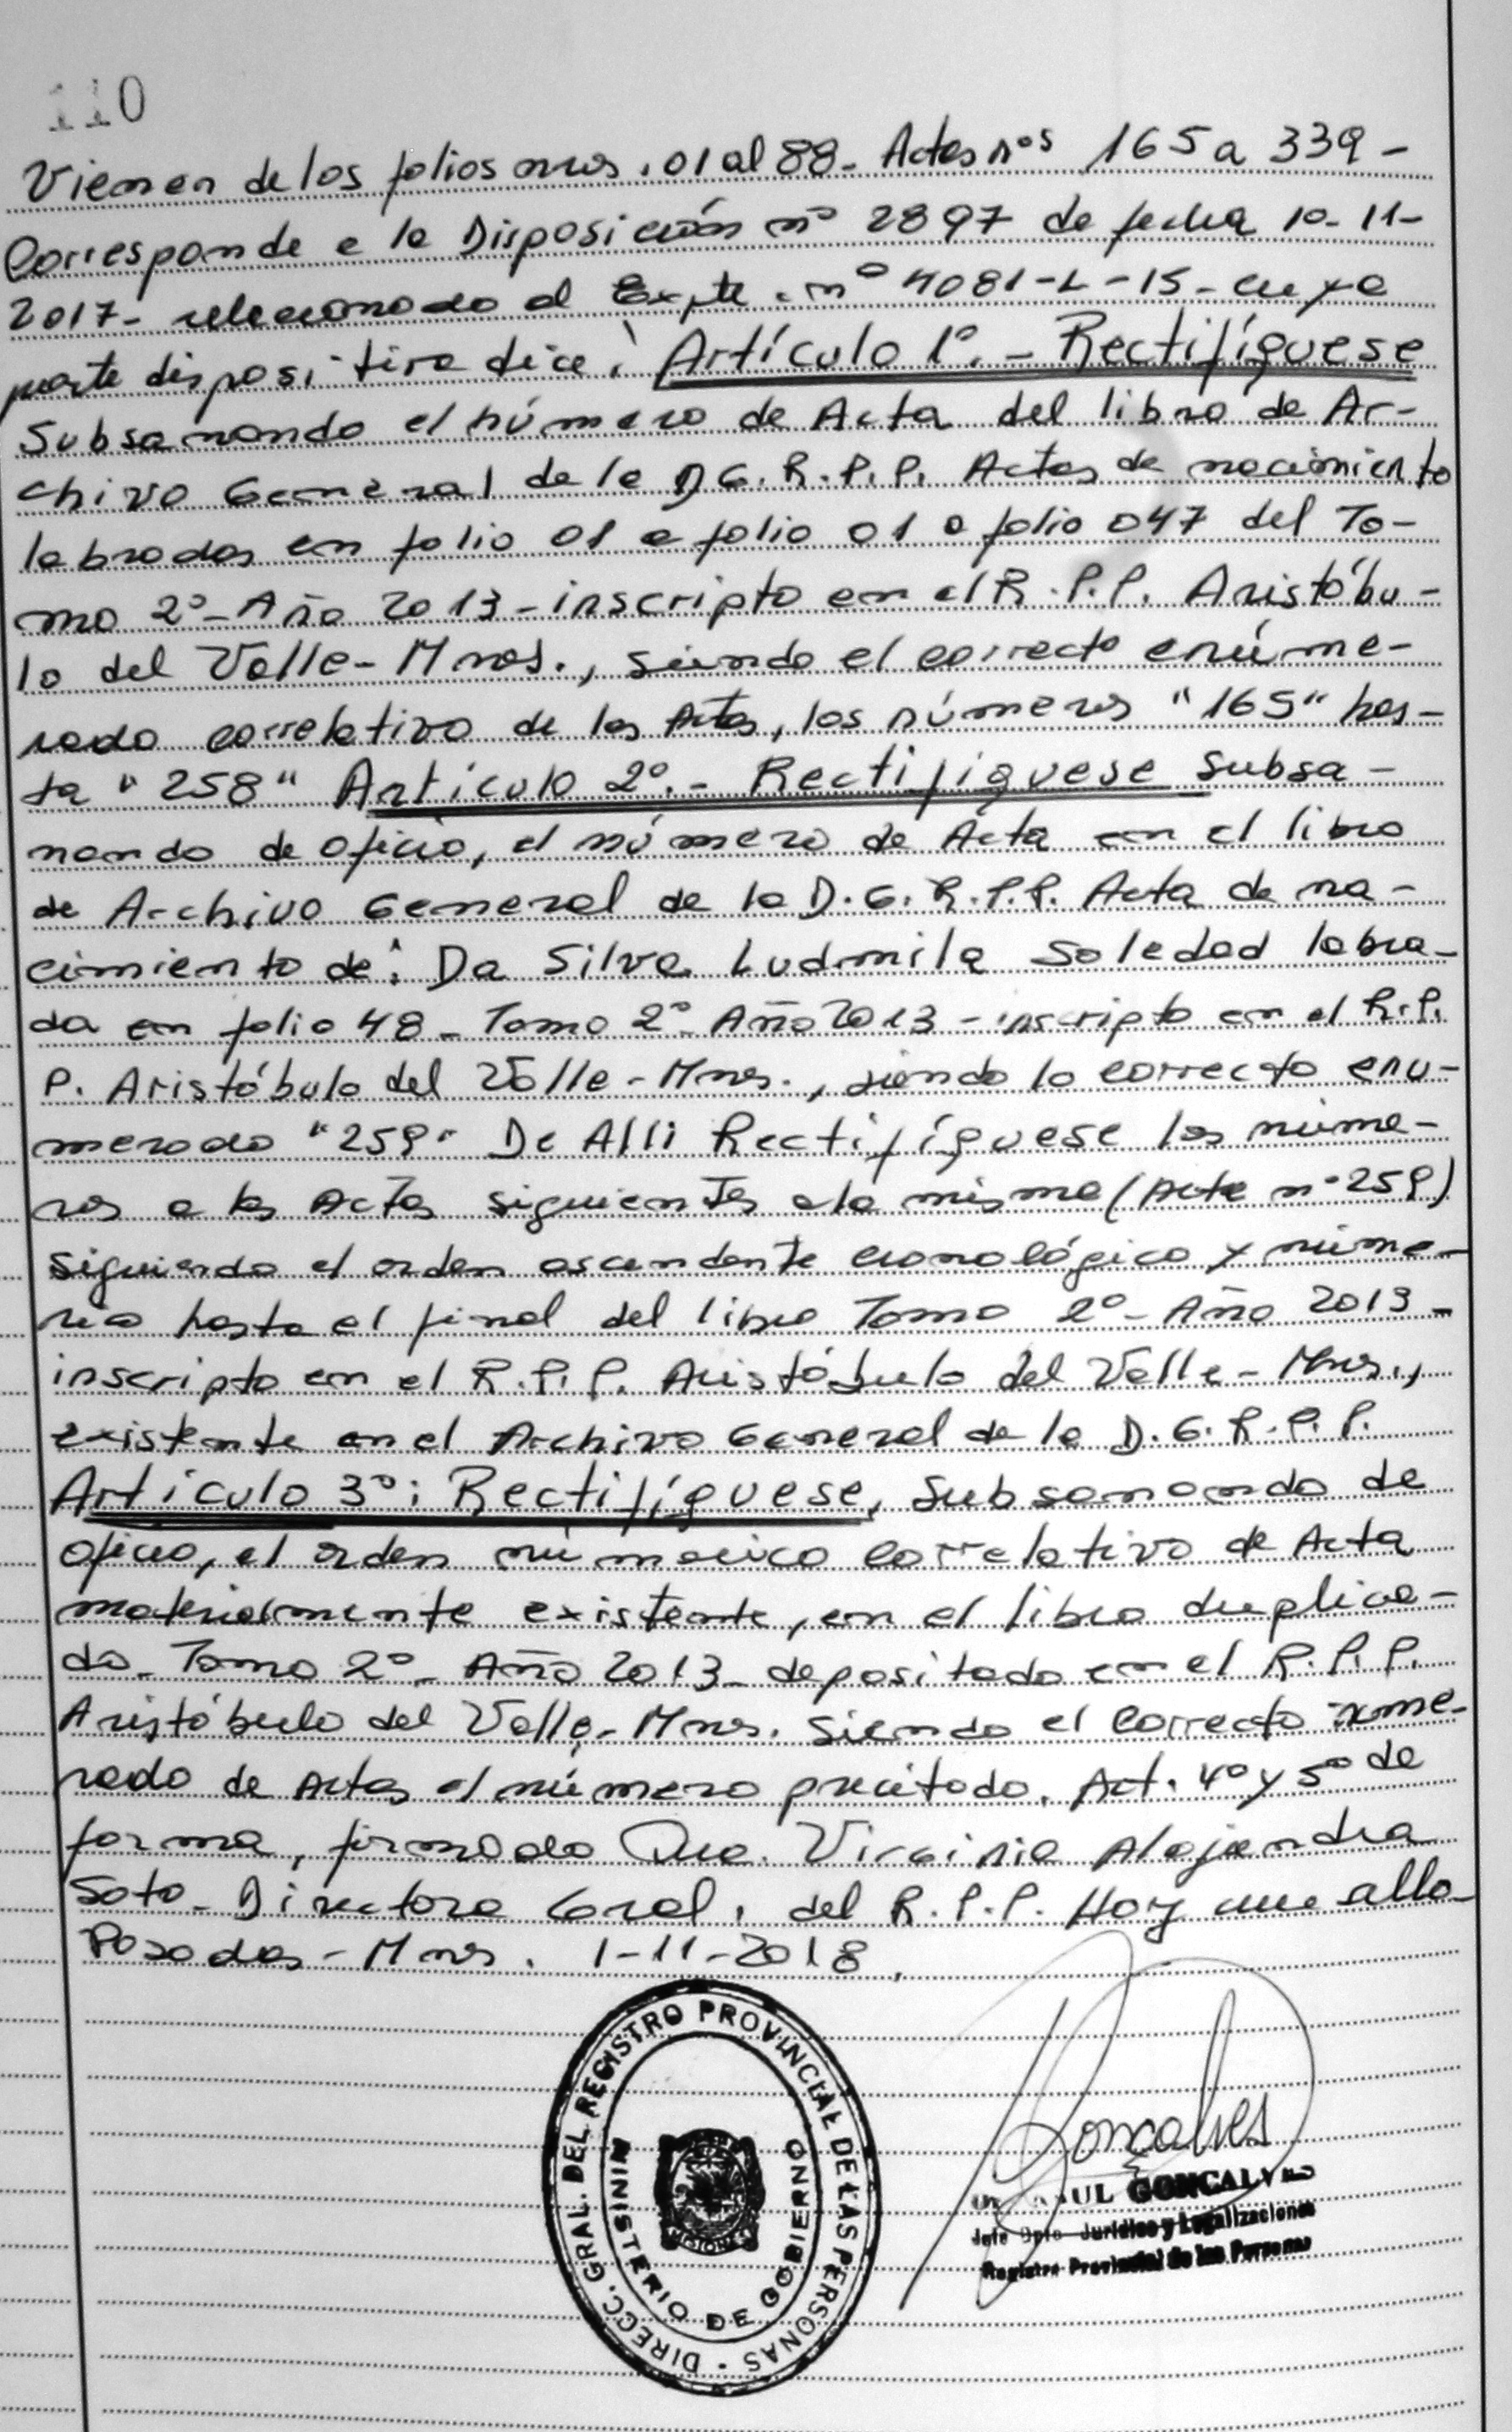 110
Vienen de los folios nros. 01 al 88- Actas nos 165 a 339-
Corresponde a la Disposición nº 2897 de fecha 10-11-
2017- relacionado al Expte. nº 4081-L-15- cuya
parte dispositiva dice: Artículo 1º.- Rectifíquese
Subsanando el número de Acta del libro de Ar-
chivo General de la D.G.R.P.P. Actas de nacimiento
labradas en folio 01 a folio 01 a folio 047 del To-
mo 2º- Año 2013- inscripto en el R.P.P. Aristóbu-
lo del Valle- Mnes., siendo el correcto enúme-
rado correlativo de las Actas, los números "165" has-
ta "258" Artículo 2º.- Rectifíquese subsa-
nando de oficio, el número de Acta en el libro
de Archivo General de la D.G.R.P.P. Acta de na-
cimiento de: Da Silva Ludmila Soledad labra-
da en folio 48- Tomo 2º- Año 2013- inscripto en el R.P.
P. Aristóbulo del Valle- Mnes., siendo lo correcto enu-
merado "259" De Alli Rectifíquese los núme-
ros a las Actas siguientes a la misma (Acta nº 259)
siguiendo el orden ascendente cronológico y númé-
rico hasta el final del libro Tomo 2º- Año 2013-
inscripto en el R.P.P. Aristóbulo del Valle- Mnes.,
existente en el Archivo General de la D.G.R.P.P.
Artículo 3º: Rectifíquese, Subsanando de
oficio, el orden númerico correlativo de Acta
materialmente existente, en el libro duplica-
do- Tomo 2º- Año 2013- depositado en el R.P.P.
Aristóbulo del Valle- Mnes. Siendo el correcto nume-
rado de Actas el número precitado. Art. 4º y 5º de
forma, firmado Dra. Virginia Alejandra
Soto- Directora Gral. del R.P.P. Hoy
Posadas- Mnes. 1-11-2018.
DIRECC. GRAL. DEL REGISTRO PROVINCIAL DE LAS PERSONAS -
MINISTERIO DE GOBIERNO
MISIONES
Goncalves
GONCALVES
Jefe Dpto. Jurídico y Legalizaciones
Registro Provincial de las Personas